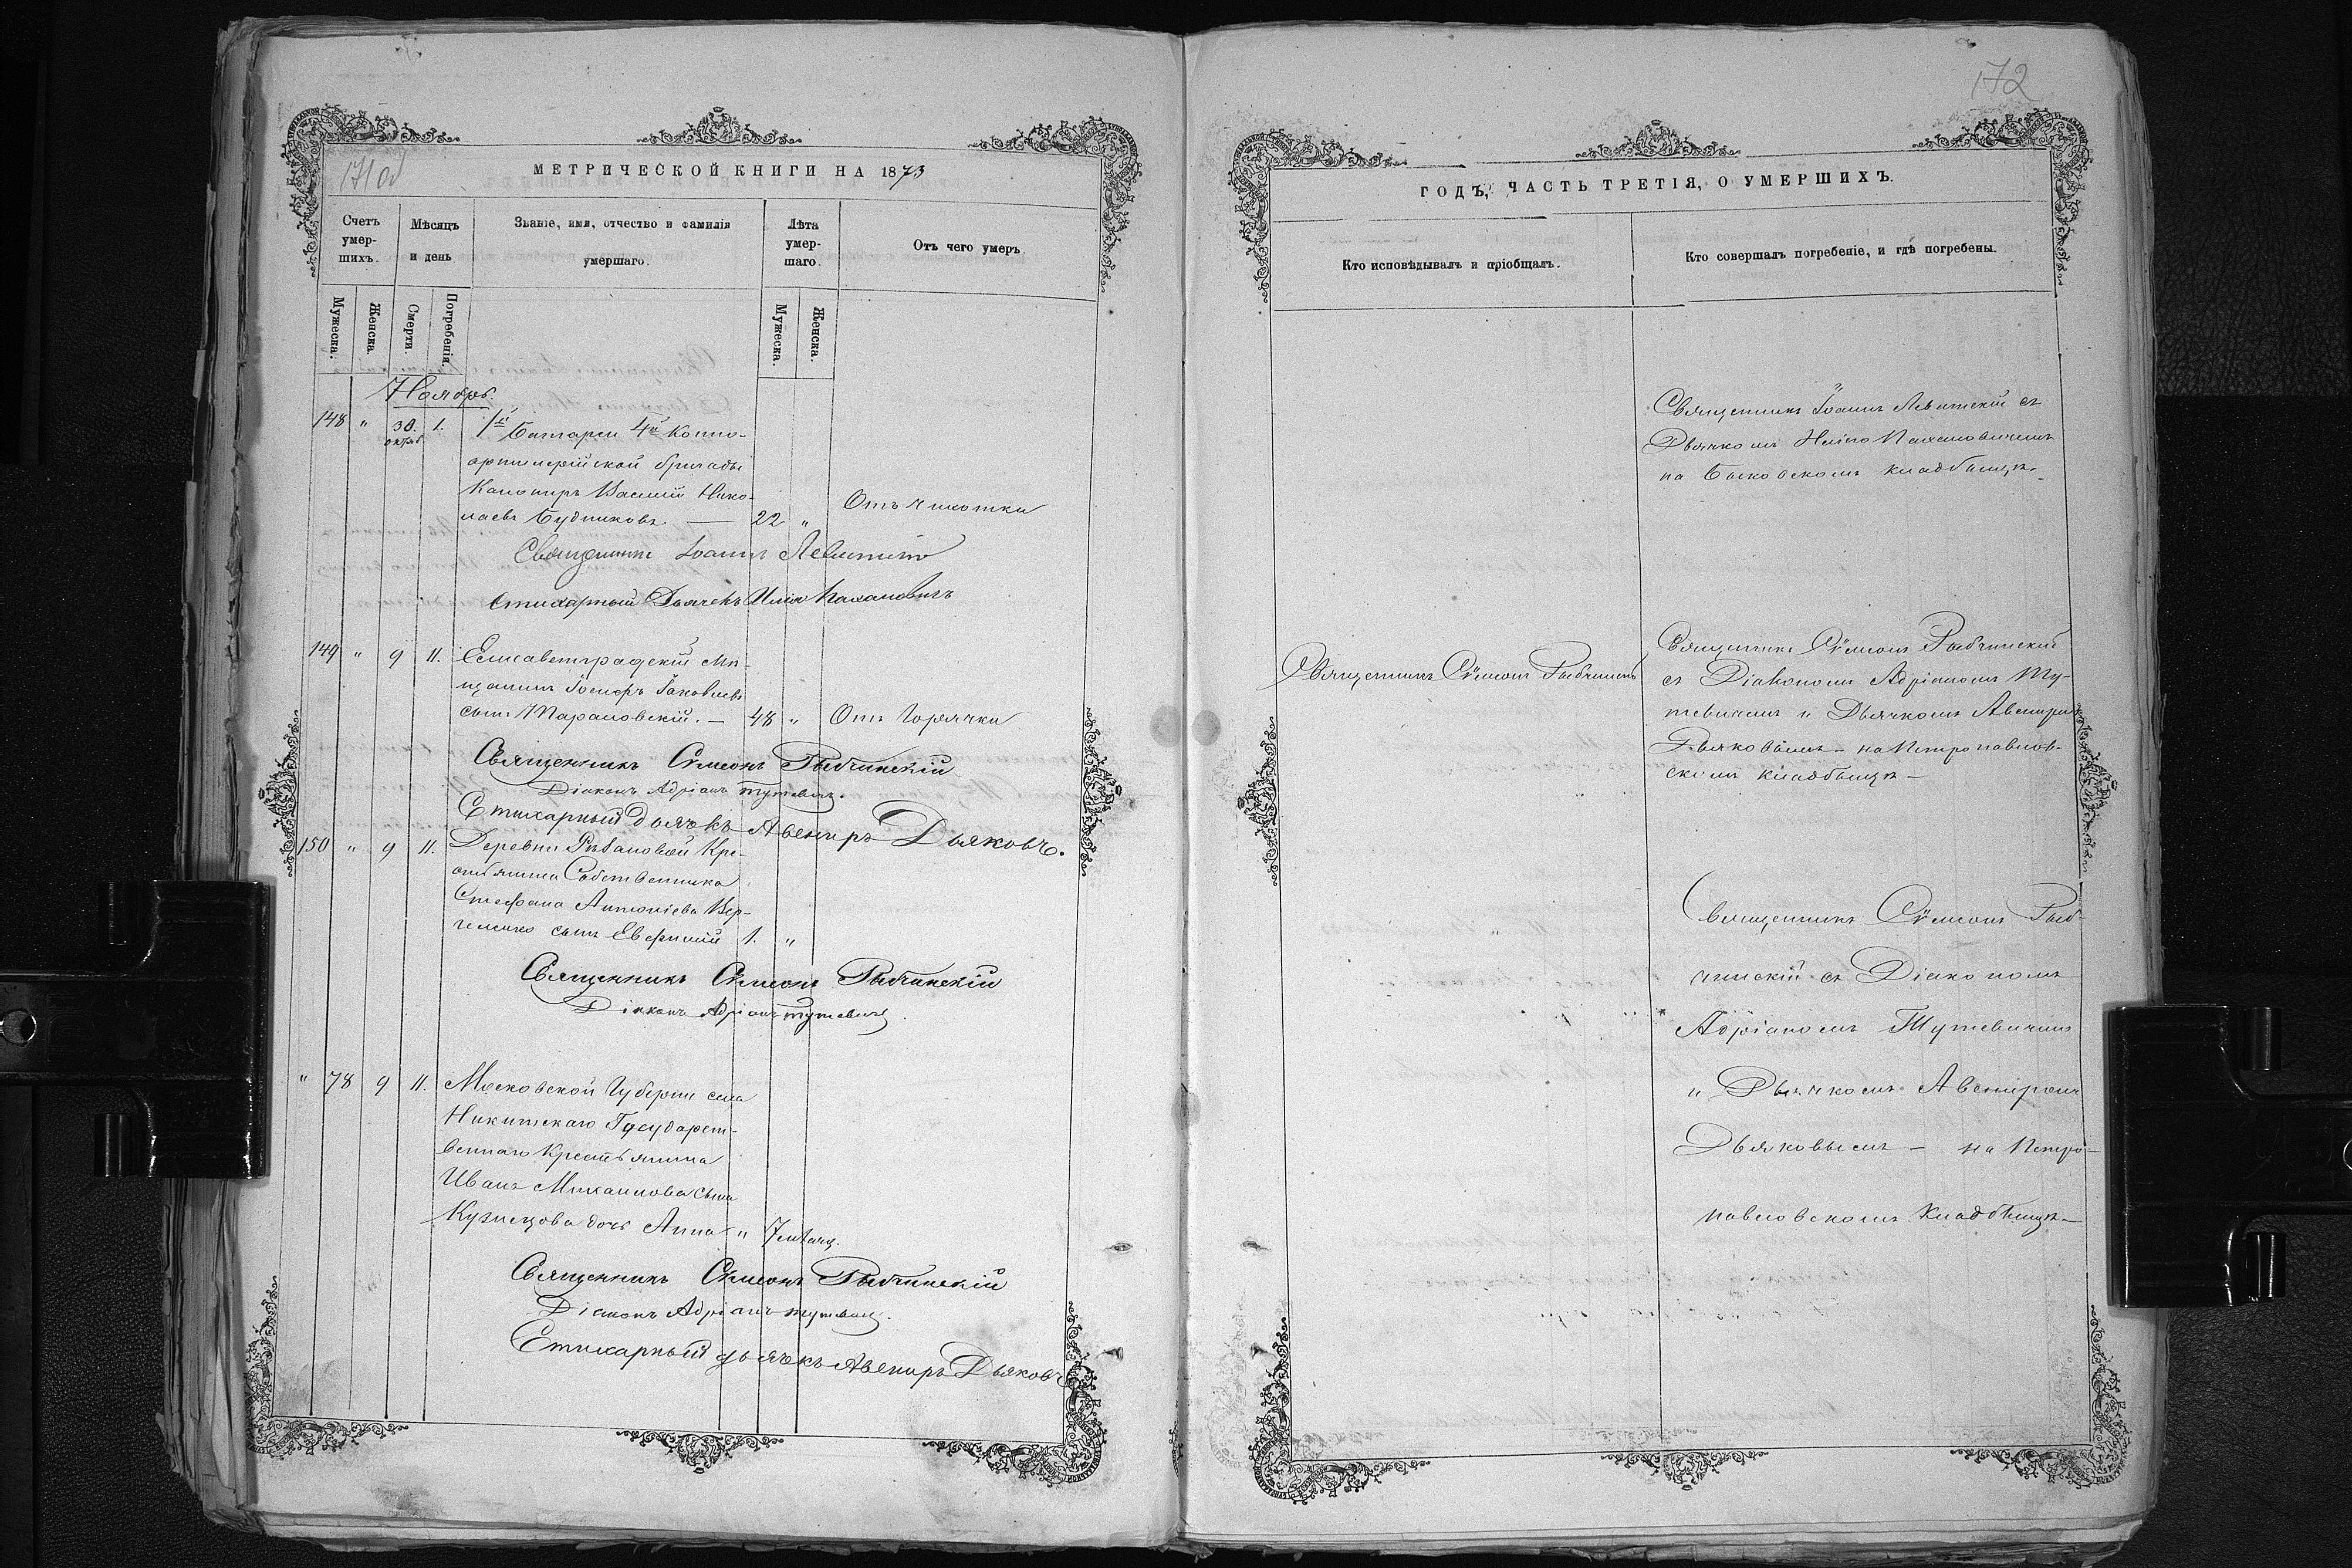 171 об
МЕТРИЧЕСКОЙ КНИГИ НА 1873
Счетъ умер-шихъ.
Мѣсяцъ и день
Званіе, имя, отчество и фамилія умершаго.
Лѣта умер-шаго.
Отъ чего умеръ
Мужеска.
Женска
Смерти.
Погребенія
Мужеска
Женска.
Ноябрь.
148 " 30. октяб 1. 1й Батареи 4й Конно-
артилерійской бригады
Канониръ Василій Нико-
лаевъ Будниковъ — 22 " Отъ чихотки
Священникъ Іоаннъ
Стихарный Дьячекъ Илія
149 " 9 11. Елисаветградскій мѣ-
щанинъ Іосифъ Іаковлевъ
сынъ Тарановскій. — 48 " Отъ горячки
Священникъ Сѵмеонъ Рыбчинскій
Діаконъ Адріанъ Тутевичъ.
Стихарный дьячкъ Авениръ Дьяковъ.
150 " 9 11. Деревни Кре-
стьянина Собственника
Стефана Антоніева Вер-
сынъ Евфимій 1. "
Священникъ Сѵмеонъ Рыбчинскій
Діаконъ Адріанъ Тутевичъ.
" 78 9 11. Московской Губерніи села
Никитскаго Государст-
веннаго Крестьянина
Иванъ Михаилова сына
Кузнецова дочь Анна " 7 мѣсяц.
Священникъ Сѵмеонъ Рыбчинскій
Діаконъ Адріанъ Тутевичъ.
Стихарный дьячкъ Авениръ Дьяковъ
172
ГОДЪ, ЧАСТЬ ТРЕТІЯ, О УМЕРШИХЪ.
Кто исповѣдывалъ и пріобщалъ.
Кто совершалъ погребеніе, и гдѣ погребены.
Священникъ Іоаннъ съ
Дьячкомъ
на Быковскомъ кладбищѣ.
Священникъ Сѵмеонъ Рыбчинскій
Священникъ Сѵмеонъ Рыбчинскій
съ Діакономъ Адріаномъ Ту-
тевичемъ и Дьячкомъ Авениромъ
Дьяковымъ — на Петропавлов-
скомъ кладбищѣ —
Священникъ Сѵмеонъ Рыб-
чинскій съ Діакономъ
Адріаномъ Тутевичемъ
и Дьячкомъ Авениромъ
Дьяковымъ — на Петро-
павловскомъ Кладбищѣ —